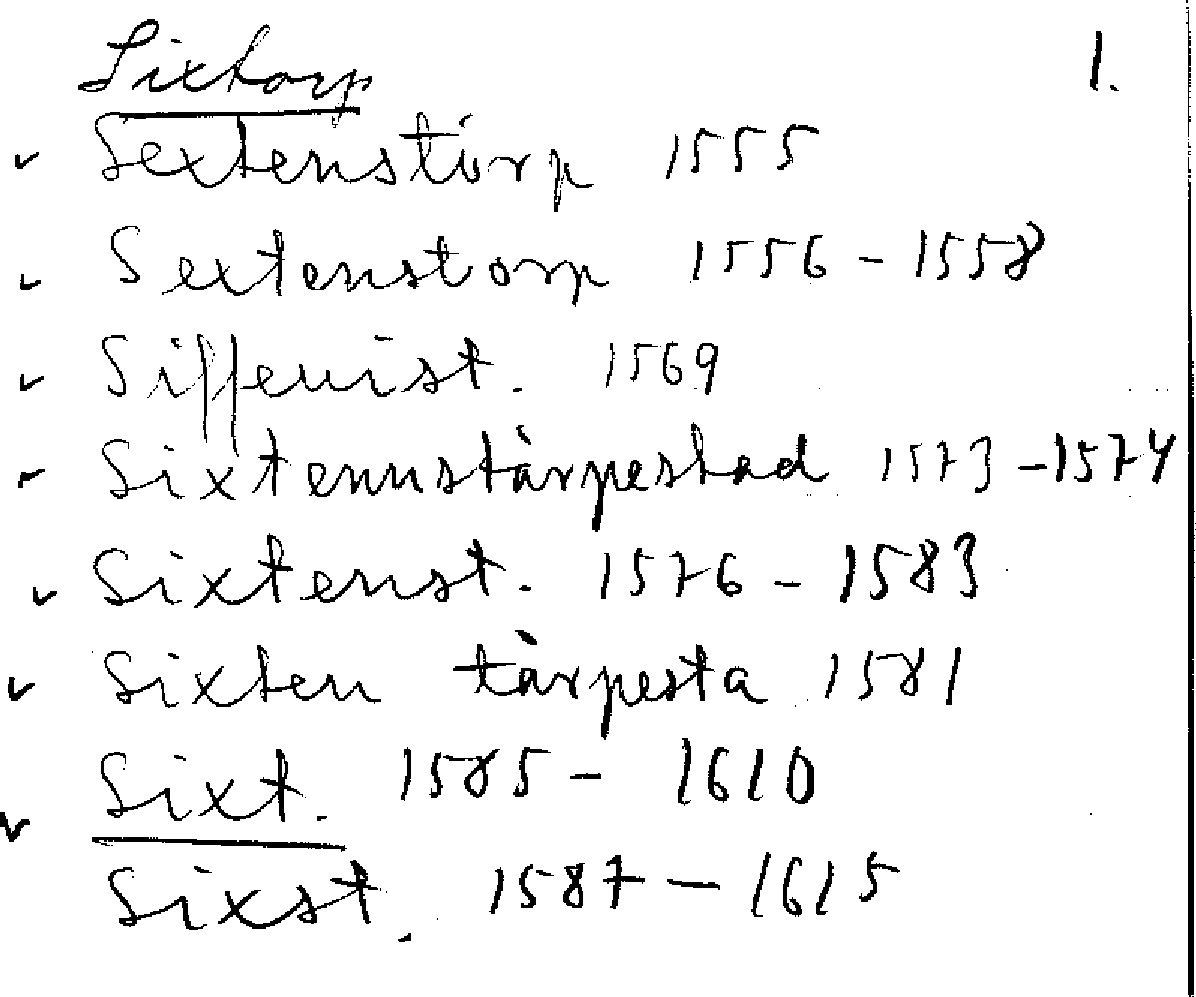 Sixtorp 1.
Sextenstörp 1555
Sextenstorp 1556 - 1558
Siffeuist. 1569
Sixtennstårpestad 1573 - 1574
Sixtenst. 1576 - 1583
Sixten tårpesta 1581
Sixt. 1585 - 1610
Sixst. 1587 - 1615